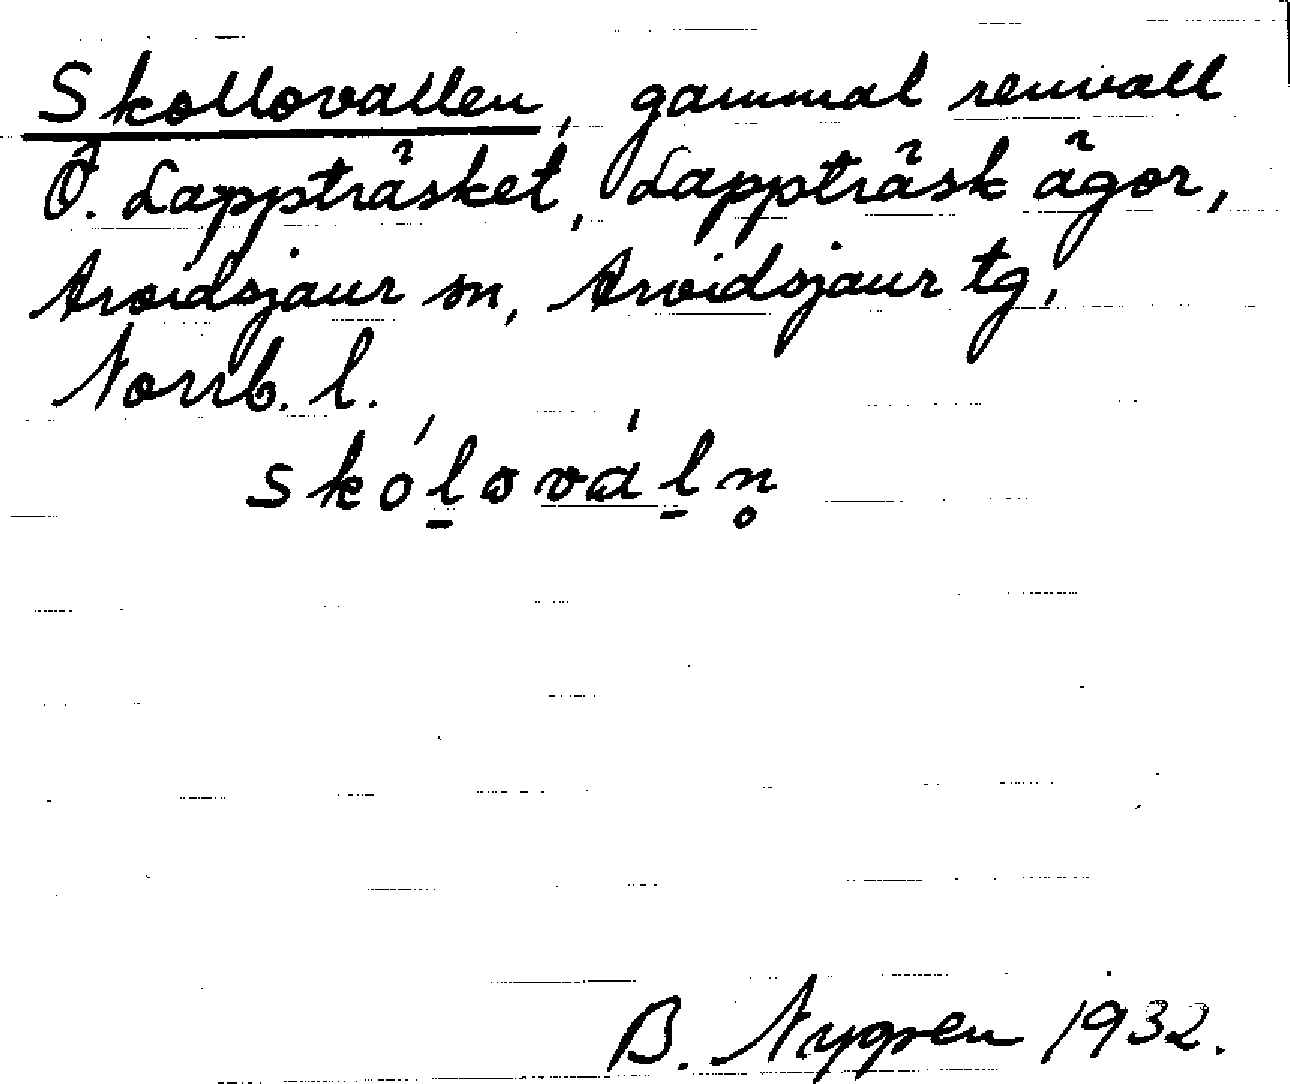 Skollovallen, gammal renvall
Ö. Lappträsket, Lappträsk ägor,
Arvidsjaur sn, Arvidsjaur tg,
Norrb. l.
skólovál̥n̥
B. Nygren 1932.